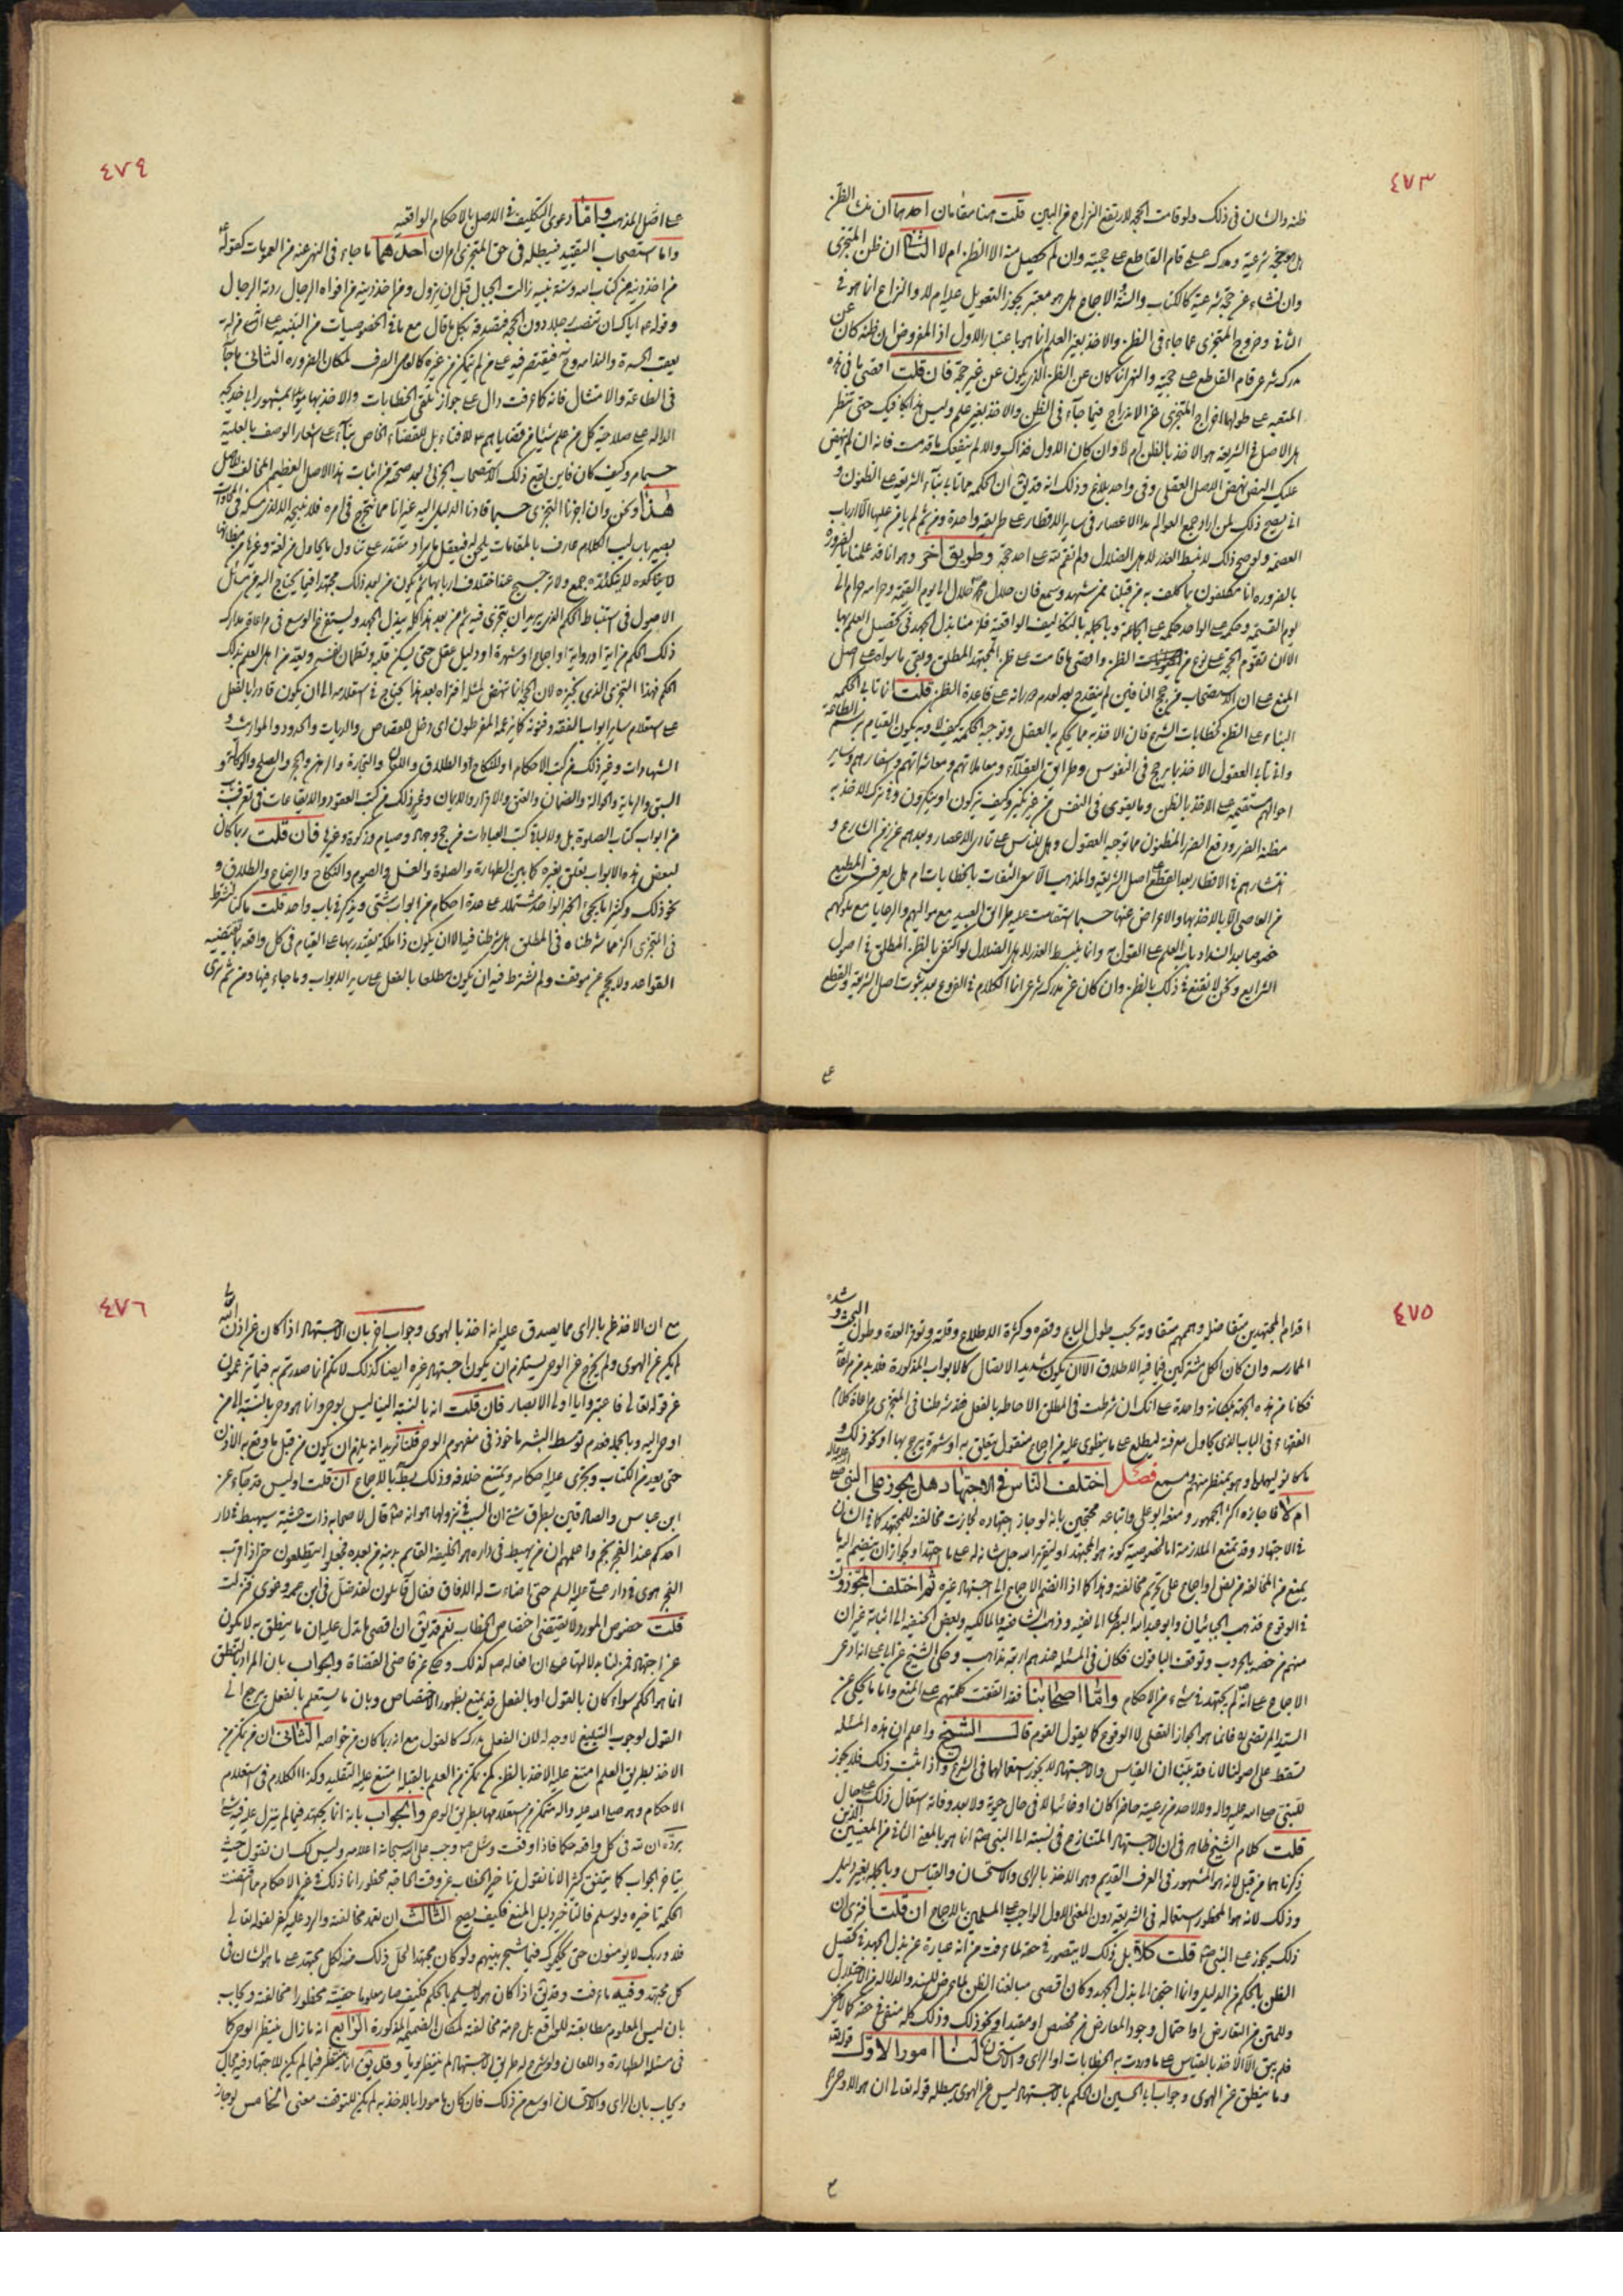 ٤٧٣
ظنه والشان فى ذلك ولو قامت الحجة لارتفع النزاع من البين قلت هنا مقامان احدهما ان هذا الظن
هل هو عن حجة شرعية ومدرك شرعى قام القاطع على حجيته وان لم يحصل منه الا الظن ام لا الثانى ان ظن المتجزى
وان نشاء عن حجة شرعية كالكتاب والسنة والاجماع هل هو معتبر يجوز التعويل عليه ام لا والنزاع انما هو فى
الثانى وخروج المتجزى عما جاء فى الظن والاخذ بغير العلم انما هو باعتبار الاول اذ المفروض ان ظنه كان عن
مدرك شرعى قام القاطع على حجيته والنهى انما كان عن الظن الذى يكون عن غير حجة فان قلت اقصى ما فى هذه
المتعبة على طولها اخراج المتجزى عن الاندراج فيما جاء فى الظن والاخذ بغير علم وليس هذا بكافيك حتى تنظر
هل الاصل فى الشريعة هو الاخذ بالظن ام لا وان كان الاول فذاك والا لم ينفعك ما قدمت فانه ان لم ينهض
عليك النص نهض الاصل العقلى وفى واحد بلاغ وذلك انه قد يق ان الحكمة مما تابى بناء الشريعة على الظنون و
انى يصح ذلك لمن اراد جمع العوالم مدا الاعصار فى ساير الاقطار على طريقة واحدة ومن ثم لم يامن عليها الا ارباب
العصمة ولو صح ذلك لانبسط العذر لاهل الضلال ولم تقم لله على احد حجة وطريق اخر وهو انا قد علمنا بالضرورة
بالضرورة انا مكلفون بما كلف به من قبلنا ممن شهد وسمع فان حلال محمد حلال الى يوم القيمة وحرامه حرام الى
يوم القيمة وحكمه على الواحد حكمه على الجماعة وبالجملة بالتكاليف الواقعية فلزمنا بذل الجهد فى تحصيل العلم بها
الا ان تقوم الحجة على نوع من الظن واقصى ما قامت على ظن المجتهد المطلق وبقى ما سواه على اصل
المنع على ان الاستصحاب من حجج النافين لم ينقدح بعد لعدم صراحته على قاعدة الظن قلت انما تابى الحكمة
البناء على الظن لخطابات الشرع فان الاخذ به مما يحكم به العقل وتوجبه الحكمة كيف لا وبه يكون القيام برسم الطاعة
وانى تابى العقول الاخذ بما يرجح فى النفوس وطرايق العقلاء ومعاملاتهم ومعاشراتهم واسفارهم وساير
احوالهم مستقيمة على الاخذ بالظن وما يقوى فى النفس من غير نكير وكيف يتركون او ينكرون وفى ترك الاخذ به
مظنة الضرر ودفع الضرر المظنون مما توجبه العقول وهل للناس على تمادى الاعصار وبعدهم عن زمن الشارع و
انتشارهم فى الاقطار بعد القطع على اصل الشريعة والمذهب الا سوى الثقات بالخطابات ام هل يعرف المطيع
من العاصى الا بالاخذ بها والاعراض عنها حسبما استقامت عليه طرايق العبيد مع مواليهم والرعايا مع ملوكهم
خصوصا بعد انسداد باب العلم على القول به وانما ينبسط العذر لاهل الضلال لو اكتفى بالظن المطلق فى اصول
الشرايع ونحن لا نقنع فى ذلك بالظن وان كان عن مدرك شرعى انما الكلام فى الفروع بعد ثبوت اصل الشريعة والقطع
على
٤٧٤
على اصل المذهب واما دعوى التكليف فى الاصل بالاحكام الواقعية
واما استصحاب التقييد فيبطله فى حق المتجزى امران احدهما ما جاء فى النهى عنه من العمومات كقوله ع
من اخذ دينه من كتاب الله وسنة نبيه زالت الجبال قبل ان يزول ومن اخذ دينه من افواه الرجال ردته الرجال
وقوله ع اياك ان تنصب رجلا دون الحجة فتصدقه بكل ما قال مع ما فى الخصوصيات من التنبيه على انه منزلة
يعقب الحسرة والندامة وح فيقتصر فيه على من لم يتمكن من غيره كالعامى الصرف لمكان الضرورة الثانى ما جاء
فى الطاعة والامتثال فانه كما عرفت دال على جواز تلقى الخطابات والاخذ بها مؤيدا بمشهور ابى خديجة
الدالة على صلاحية كل من علم شيئا من قضاياهم ع للافتاء بل للقضاء الخاص بناء على اشعار الوصف بالعلية
حسبما مر وكيف كان فاين يقع ذلك الاستصحاب الجزئى بعد صحته من اثبات هذا الاصل العظيم المخالف للاصل
هذا ونحن وان اجزنا التجزى حسبما قادنا الدليل اليه غير انا مما نتحرج فى امره فلا نبيحه الا لذى مسكة فى المحاورات
بصير باساليب الكلام عارف بالمقامات بلحن له فيعقل ما يراد مقتدر على تناول ما يحاول من لغة وغيرها من مظانها
لا يتكاده له جمع ولا ترجيح عند اختلاف اربابها ثم يكون من بعد ذلك مجتهدا فيما يحتاج اليه من مسائل
الاصول فى استنباط الحكم الذى يريد ان يتجزى فيه ثم من بعد هذا كله يبذل الجهد ويستفرغ الوسع فى مراعاة مدارك
ذلك الحكم من اية او رواية او اجماع او شهرة او دليل عقل حتى يسكن قلبه وتطمئن نفسه ويعد من اهل العلم بذلك
الحكم فهذا التجزى الذى نجيزه لان الحجة انما تنهض لمثله افتراه بعد هذا يحتاج فى استعلامه الى ان يكون قادرا بالفعل
على استعلام ساير ابواب الفقه وفنونه كما زعمه المفرطون اى دخل للقصاص والديات والحدود والمواريث و
الشهادات وغير ذلك من كتب الاحكام او للنكاح او الطلاق واللعان والتجارة والرهن والحجر والصلح والوكالة و
السبق والرماية والحوالة والضمان والعتق والاقرار والايمان وغير ذلك من كتب العقود والايقاعات فى تعرف
من ابواب كتاب الصلوة بل ولا لباقى كتب العبادات من حج وجهاد وصيام وزكوة وغيرها فان قلت ربما كان
لبعض هذه الابواب تعلق بغيره كما بين الطهارة والصلوة والغسل والصوم والنكاح والرضاع والطلاق و
نحو ذلك وكثيرا ما يجئ الخبر الواحد مشتملا على عدة احكام من ابواب شتى ويذكر فى باب واحد قلت ما كنا لنشترط
فى التجزى اكثر مما شرطناه فى المطلق هل شرطنا فيه الا ان يكون ذا ملكة يقتدر بها على القيام فى كل واقعة بما تقتضيه
القواعد ولا يحجم عن موقف ولم نشترط فيه ان يكون مطلعا بالفعل على ساير الابواب وما جاء فيها ومن ثم ترى
٤٧٥
اقدام المجتهدين متفاضلة وهممهم متفاوتة بحسب طول الباع وقصره وكثرة الاطلاع وقلته وتوفر العدة وطول البحث وشدة
الممارسة وان كان الكل مشتركين فيما فيه الاطلاق الا ان يكون شديد الاتصال كالابواب المذكورة فلا بد من مراعاته
فكانا من هذه الجهة بمكانة واحدة على انك ان شرطت فى المطلق الاحاطة بالفعل فقد شرطنا فى المتجزى مراعاة كلام
الفقهاء فى الباب الذى يحاول معرفته ليطلع على ما ينطوى عليه من اجماع منقول يتعلق به او شهرة يرجح بها او نحو ذلك و
ما كانوا ليهملوا وهو بمنظر منهم ومسمع فصل اختلف الناس فى الاجتهاد هل يجوز على النبى صلى الله عليه واله
ام لا فاجازه اكثر الجمهور ومنعه ابو على واتباعه محتجين بانه لو جاز اجتهاده لجازت مخالفته للمجتهد كما هو الشان
فى الاجتهاد وقد تمتع الملازمة اما لخصوصية كونه هو المجتهد او لتقرير الله جل شانه له على ما اجتهد او لجواز ان ينضم اليه ما
يمنع من المخالفة من نص او اجماع على تحريم مخالفته وهذا كما اذا انضم الاجماع الى اجتهاد غيره ثم اختلف المجوزون
فى الوقوع فذهب الجبائيان وابو عبد الله البصرى الى نفيه وذهب الشافعية والمالكية وبعض الحنفية الى اثباته غير ان
منهم من خصه بالحروب وتوقف الباقون فكان فى المسئلة عندهم اربعة مذاهب وحكى الشيخ عن ابى على انه ادعى
الاجماع على انه لم يجتهد فى شئ من الاحكام واما اصحابنا فقد اتفقت كلمتهم على المنع واما ما يحكى عن
السيد المرتضى به فانما هو الجواز العقلى لا الوقوع كما يقول القوم قال الشيخ واعلم ان هذه المسئلة
تسقط على اصولنا لانا قد بينا ان القياس والاجتهاد لا يجوز استعمالهما فى الشرع واذا ثبت ذلك فلا يجوز
للنبى صلى الله عليه واله ولا لاحد من رعيته حاضرا كان او غائبا لا فى حال حيوته ولا بعد وفاته استعمال ذلك على حال
قلت كلام الشيخ ظاهر فى ان الاجتهاد المتنازع فى نسبته الى النبى ص انما هو بالمعنى الثانى من المعنيين الذين
ذكرناهما من قبل لانه هو المشهور فى العرف القديم وهو الاخذ بالراى والاستحسان والقياس وبالجملة بغير دليل
وذلك لانه هو المحظور استعماله فى الشريعة دون المعنى الاول الواجب على المسلمين بالاجماع ان قلت افترى ان
ذلك يجوز على النبى ص قلت كلا بل ذلك لا يتصور فى حقه لما عرفت من انه عبارة عن بذل الجهد فى تحصيل
الظن بالحكم من الدليل وانما احتجنا الى بذل الجهد وكان اقصى مبالغنا الظن لما يعرض للسند والدلالة من الاختلال
وللمتن من التعارض او احتمال وجود المعارض من مخصص او مقيد او نحو ذلك وذلك كله منتف فى حقه كما لا يخفى
فلم يبق الا الاخذ بالقياس على ما وردت به الخطابات او الراى والاستحسان لنا امور الاول قوله تعالى
وما ينطق عن الهوى وجواب ابى الحسين ان الحكم بالاجتهاد ليس عن الهوى يبطله قوله تعالى ان هو الا وحى
٤٧٦
مع ان الاخذ بالراى مما يصدق عليه انه اخذ بالهوى وجواب اخر بان الاجتهاد اذا كان عن اذن الله تعالى
لم يكن عن الهوى ولم يخرج عن الوحى يستلزم ان يكون اجتهاد غيره ايضا كذلك لانكم انما صدرتم به فيما تزعمون
عن قوله تعالى فاعتبروا يا اولى الابصار فان قلت انه بالنسبة الينا ليس بوحى وانما هو وحى بالنسبة الى من
اوحى اليه وبالجملة فعدم توسط البشر ماخوذ فى مفهوم الوحى قلنا فيه انه يلزم ان يكون من قبل ما وقع به الاذن
حتى يعد من الكتاب ويجرى عليه احكامه ويمتنع خلافه وذلك بط بالاجماع ان قلت اوليس قد جاء عن
ابن عباس والصادقين بطرق شتى ان السبب فى نزولها هو انه ص قال لاصحابه ذات عشية سيهبط فى دار
احدكم عند الفجر نجم واعلمهم ان من يهبط فى داره هو الخليفة القائم بدينه من بعده فجعلوا يتطلعون حتى اذا قرب
الفجر هوى فى دار على عليه السلم حتى اضاءت له الافاق فقال قائلون لقد ضل فى ابن عمه وغوى فنزلت
قلت خصوص المورد لا يقتضى اختصاص الخطاب نعم قد يق ان اقصى ما تدل عليه ان ما ينطق به لا يكون
عن اجتهاد فمن لنا بدلالتها على ان افعاله ص كذلك وحكى عن قاضى القضاة والجواب بان المراد بالنطق
انما هو الحكم سواء كان بالقول او بالفعل قد يمتنع بظهور الاختصاص وبان ما يستعلم بالفعل يرجع الى
القول لوجوب التبليغ لا وجه له لان الفعل مدرك كالقول مع انه ربما كان من خواصه الثانى ان من تمكن من
الاخذ بطريق العلم امتنع عليه الاخذ بالظن كمن تمكن من العلم بالقبلة امتنع عليه التقليد وكذا الكلام فى استعلام
الاحكام وهو صلى الله عليه واله متمكن من استعلامها بطريق الوحى والجواب بانه انما يجتهد فيما لم ينزل عليه فيه شئ
يرده ان لله فى كل واقعة حكما فاذا وقعت وسئل ص وجب على الله سبحانه اعلامه وليس لك ان تقول حيث
يتاخر الجواب كما يتفق كثيرا لانا نقول تاخير الخطاب عن وقت الحاجة محظور انما ذلك فى غير الاحكام مما اقتضت
الحكمة تاخيره ولو سلم فالتاخير دليل المنع فكيف يصح الثالث ان تعمد مخالفته والرد عليه كفر لقوله تعالى
فلا وربك لا يؤمنون حتى يحكموك فيما شجر بينهم ولو كان مجتهدا لحل ذلك منه لكل مجتهد على ما هو الشان فى
كل مجتهد وفيه ما عرفت وقد يق اذا كان هو لا يعلم بالحكم فكيف صار معلوما حقيته محظورا مخالفته ويجاب
بان ليس المعلوم مطابقته للواقع بل حرمة مخالفته لمكان الضميمة المذكورة الرابع انه ما زال ينتظر الوحى كما
فى مسئلة الظهارة واللعان ولو شرع له طريق الاجتهاد لم ينتظر يوما وقد يق انما ينتظر فيما لم يكن للاجتهاد فيه مجال
ويجاب بان الراى والاستحسان اوسع من ذلك فان كان مامورا بالاخذ به لم يكن للتوقف معنى الخامس لو جاز